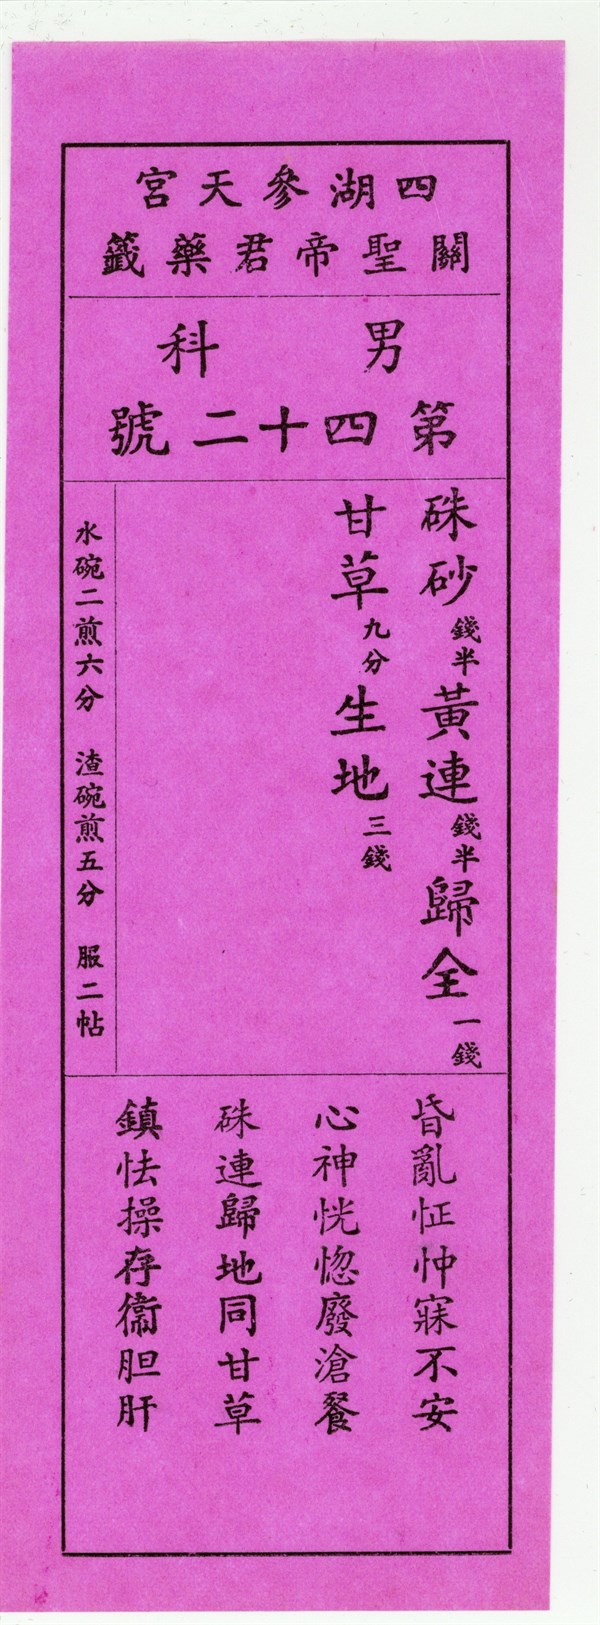 四湖參天宮
關聖帝君藥籤
男科
第四十二號
硃砂錢半黃連錢半歸全一錢
甘草九分生地三錢
水碗二煎六分 渣碗煎五分 服二帖
昏亂怔忡寐不安
心神恍惚廢滄餐
硃連歸地同甘草
鎮怯操存衞胆肝